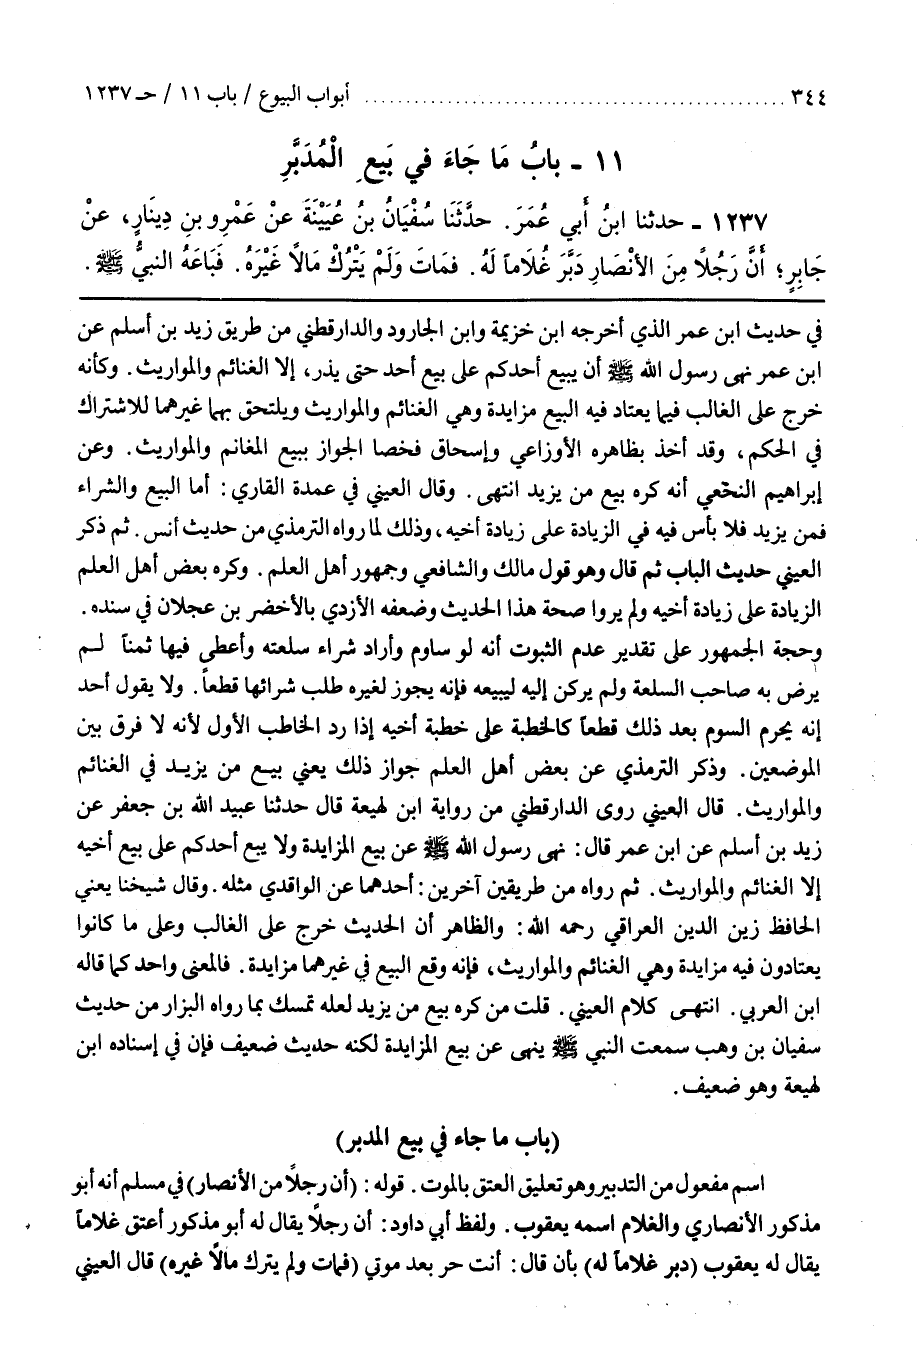 ٣٤٤ ........................................ أبواب البيوع / باب ١١ / حـ ١٢٣٧
١١ - بابُ مَا جَاءَ في بَيعِ الْمُدَبَّرِ
١٢٣٧ - حدثنا ابنُ أَبي عُمَرَ. حدَّثَنَا سُفْيَانُ بنُ عُيَيْنَةَ عنْ عَمْرِو بنِ دِينَارٍ، عنْ
جَابِرٍ؛ أَنَّ رَجُلًا مِنَ الأنْصَارِ دَبَّرَ غُلَاماً لَهُ. فمَاتَ وَلَمْ يَتْرُكْ مَالاً غَيْرَهُ. فَبَاعَهُ النبيُّ ﷺ.
في حديث ابن عمر الذي أخرجه ابن خزيمة وابن الجارود والدارقطني من طريق زيد بن أسلم عن
ابن عمر نهى رسول الله ﷺ أن يبيع أحدكم على بيع أحد حتى يذر، إلا الغنائم والمواريث. وكأنه
خرج على الغالب فيما يعتاد فيه البيع مزايدة وهي الغنائم والمواريث ويلتحق بهما غيرهما للاشتراك
في الحكم، وقد أخذ بظاهره الأوزاعي وإسحاق فخصا الجواز ببيع المغانم والمواريث. وعن
إبراهيم النخعي أنه كره بيع من يزيد انتهى. وقال العيني في عمدة القاري: أما البيع والشراء
فمن يزيد فلا بأس فيه في الزيادة على زيادة أخيه، وذلك لما رواه الترمذي من حديث أنس. ثم ذكر
العيني حديث الباب ثم قال وهو قول مالك والشافعي وجمهور أهل العلم. وكره بعض أهل العلم
الزيادة على زيادة أخيه ولم يروا صحة هذا الحديث وضعفه الأزدي بالأخضر بن عجلان في سنده.
وحجة الجمهور على تقدير عدم الثبوت أنه لو ساوم وأراد شراء سلعته وأعطى فيها ثمناً لـم
يرض به صاحب السلعة ولم يركن إليه ليبيعه فإنه يجوز لغيره طلب شرائها قطعاً. ولا يقول أحد
إنه يحرم السوم بعد ذلك قطعاً كالخطبة على خطبة أخيه إذا رد الخاطب الأول لأنه لا فرق بين
الموضعين. وذكر الترمذي عن بعض أهل العلم جواز ذلك يعني بيـع من يزيـد في الغنائم
والمواريث. قال العيني روى الدارقطني من رواية ابن لهيعة قال حدثنا عبيد الله بن جعفر عن
زيد بن أسلم عن ابن عمر قال: نهى رسول الله ﷺ عن بيع المزايدة ولا يبع أحدكم على بيع أخيه
إلا الغنائم والمواريث. ثم رواه من طريقين آخرين: أحدهما عن الواقدي مثله. وقال شيخنا يعني
الحافظ زين الدين العراقي رحمه الله: والظاهر أن الحديث خرج على الغالب وعلى ما كانوا
يعتادون فيه مزايدة وهي الغنائم والمواريث، فإنه وقع البيع في غيرهما مزايدة. فالمعنى واحد كما قاله
ابن العربي. انتهـى كلام العيني. قلت من كره بيع من يزيد لعله تمسك بما رواه البزار من حديث
سفيان بن وهب سمعت النبي ﷺ ينهى عن بيع المزايدة لكنه حديث ضعيف فإن في إسناده ابن
لهيعة وهو ضعيف.
(باب ما جاء في بيع المدبر)
اسم مفعول من التدبير وهو تعليق العتق بالموت. قوله: (أن رجلاً من الأنصار) في مسلم أنه أبو
مذكور الأنصاري والغلام اسمه يعقوب. ولفظ أبي داود: أن رجلاً يقال له أبو مذكور أعتق غلاماً
يقال له يعقوب (دبر غلاماً له) بأن قال: أنت حر بعد موتي (فمات ولم يترك مالاً غيره) قال العيني